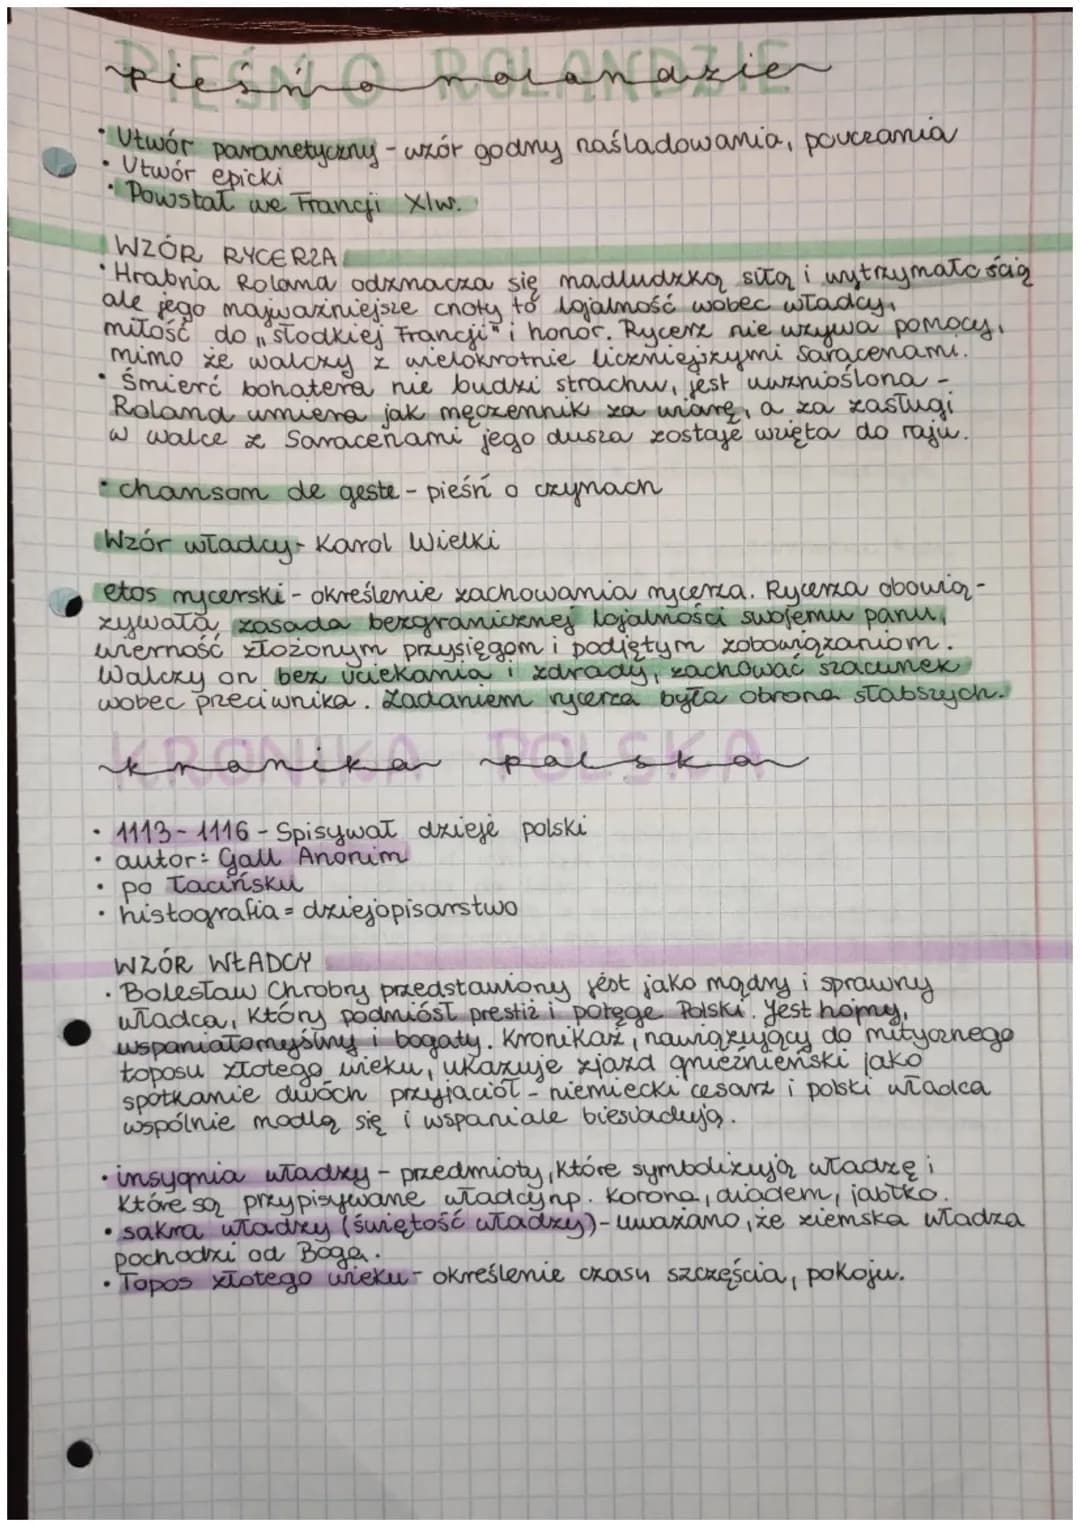 PIEŚŃ O ROLANDZIE
pieśń o rolandzie
• Utwór parametyczny - wzór godny naśladowania, pouczania
• Utwór epicki
• Powstał we Francji XIw.
WZÓR RYCERZA
• Hrabia Roland odznacza się nadludzką siłą i wytrzymałością
ale jego najważniejsze cnoty to lojalność wobec władcy,
miłość do „słodkiej Francji" i honor. Rycerz nie wzywa pomocy,
mimo że walczy z wielokrotnie liczniejszymi Saracenami.
• Śmierć bohatera nie budzi strachu, jest uwznioślona -
Roland umiera jak męczennik za wiarę, a za zasługi
w walce z Saracenami jego dusza zostaje wzięta do raju.
• chanson de geste - pieśń o czynach
Wzór władcy - Karol Wielki
etos rycerski - określenie zachowania rycerza. Rycerza obowią-
zywała zasada bezgranicznej lojalności swojemu panu,
wierność złożonym przysięgom i podjętym zobowiązaniom.
Walczy on bez uciekania i zdrady, zachować szacunek
wobec przeciwnika. Zadaniem rycerza była obrona słabszych.
KRONIKA POLSKA
kronika polska
• 1113-1116 - Spisywał dzieje polski
• autor: Gall Anonim
• po łacińsku
• histografia = dziejopisarstwo
WZÓR WŁADCY
• Bolesław Chrobry przedstawiony jest jako mądry i sprawny
władca, który podniósł prestiż i potęgę Polski. Jest hojny,
wspaniałomyślny i bogaty. Kronikaż, nawiązujący do mitycznego
toposu złotego wieku, ukazuje zjazd gnieźnieński jako
spotkanie dwóch przyjaciół - niemiecki cesarz i polski władca
wspólnie modlą się i wspaniale biesiadują.
• insygnia władzy - przedmioty, które symbolizują władzę i
które są przypisywane władcy np. korona, diadem, jabłko.
• sakra władzy (świętość władzy) - uważano, że ziemska władza
pochodzi od Boga.
• Topos złotego wieku - określenie czasu szczęścia, pokoju.